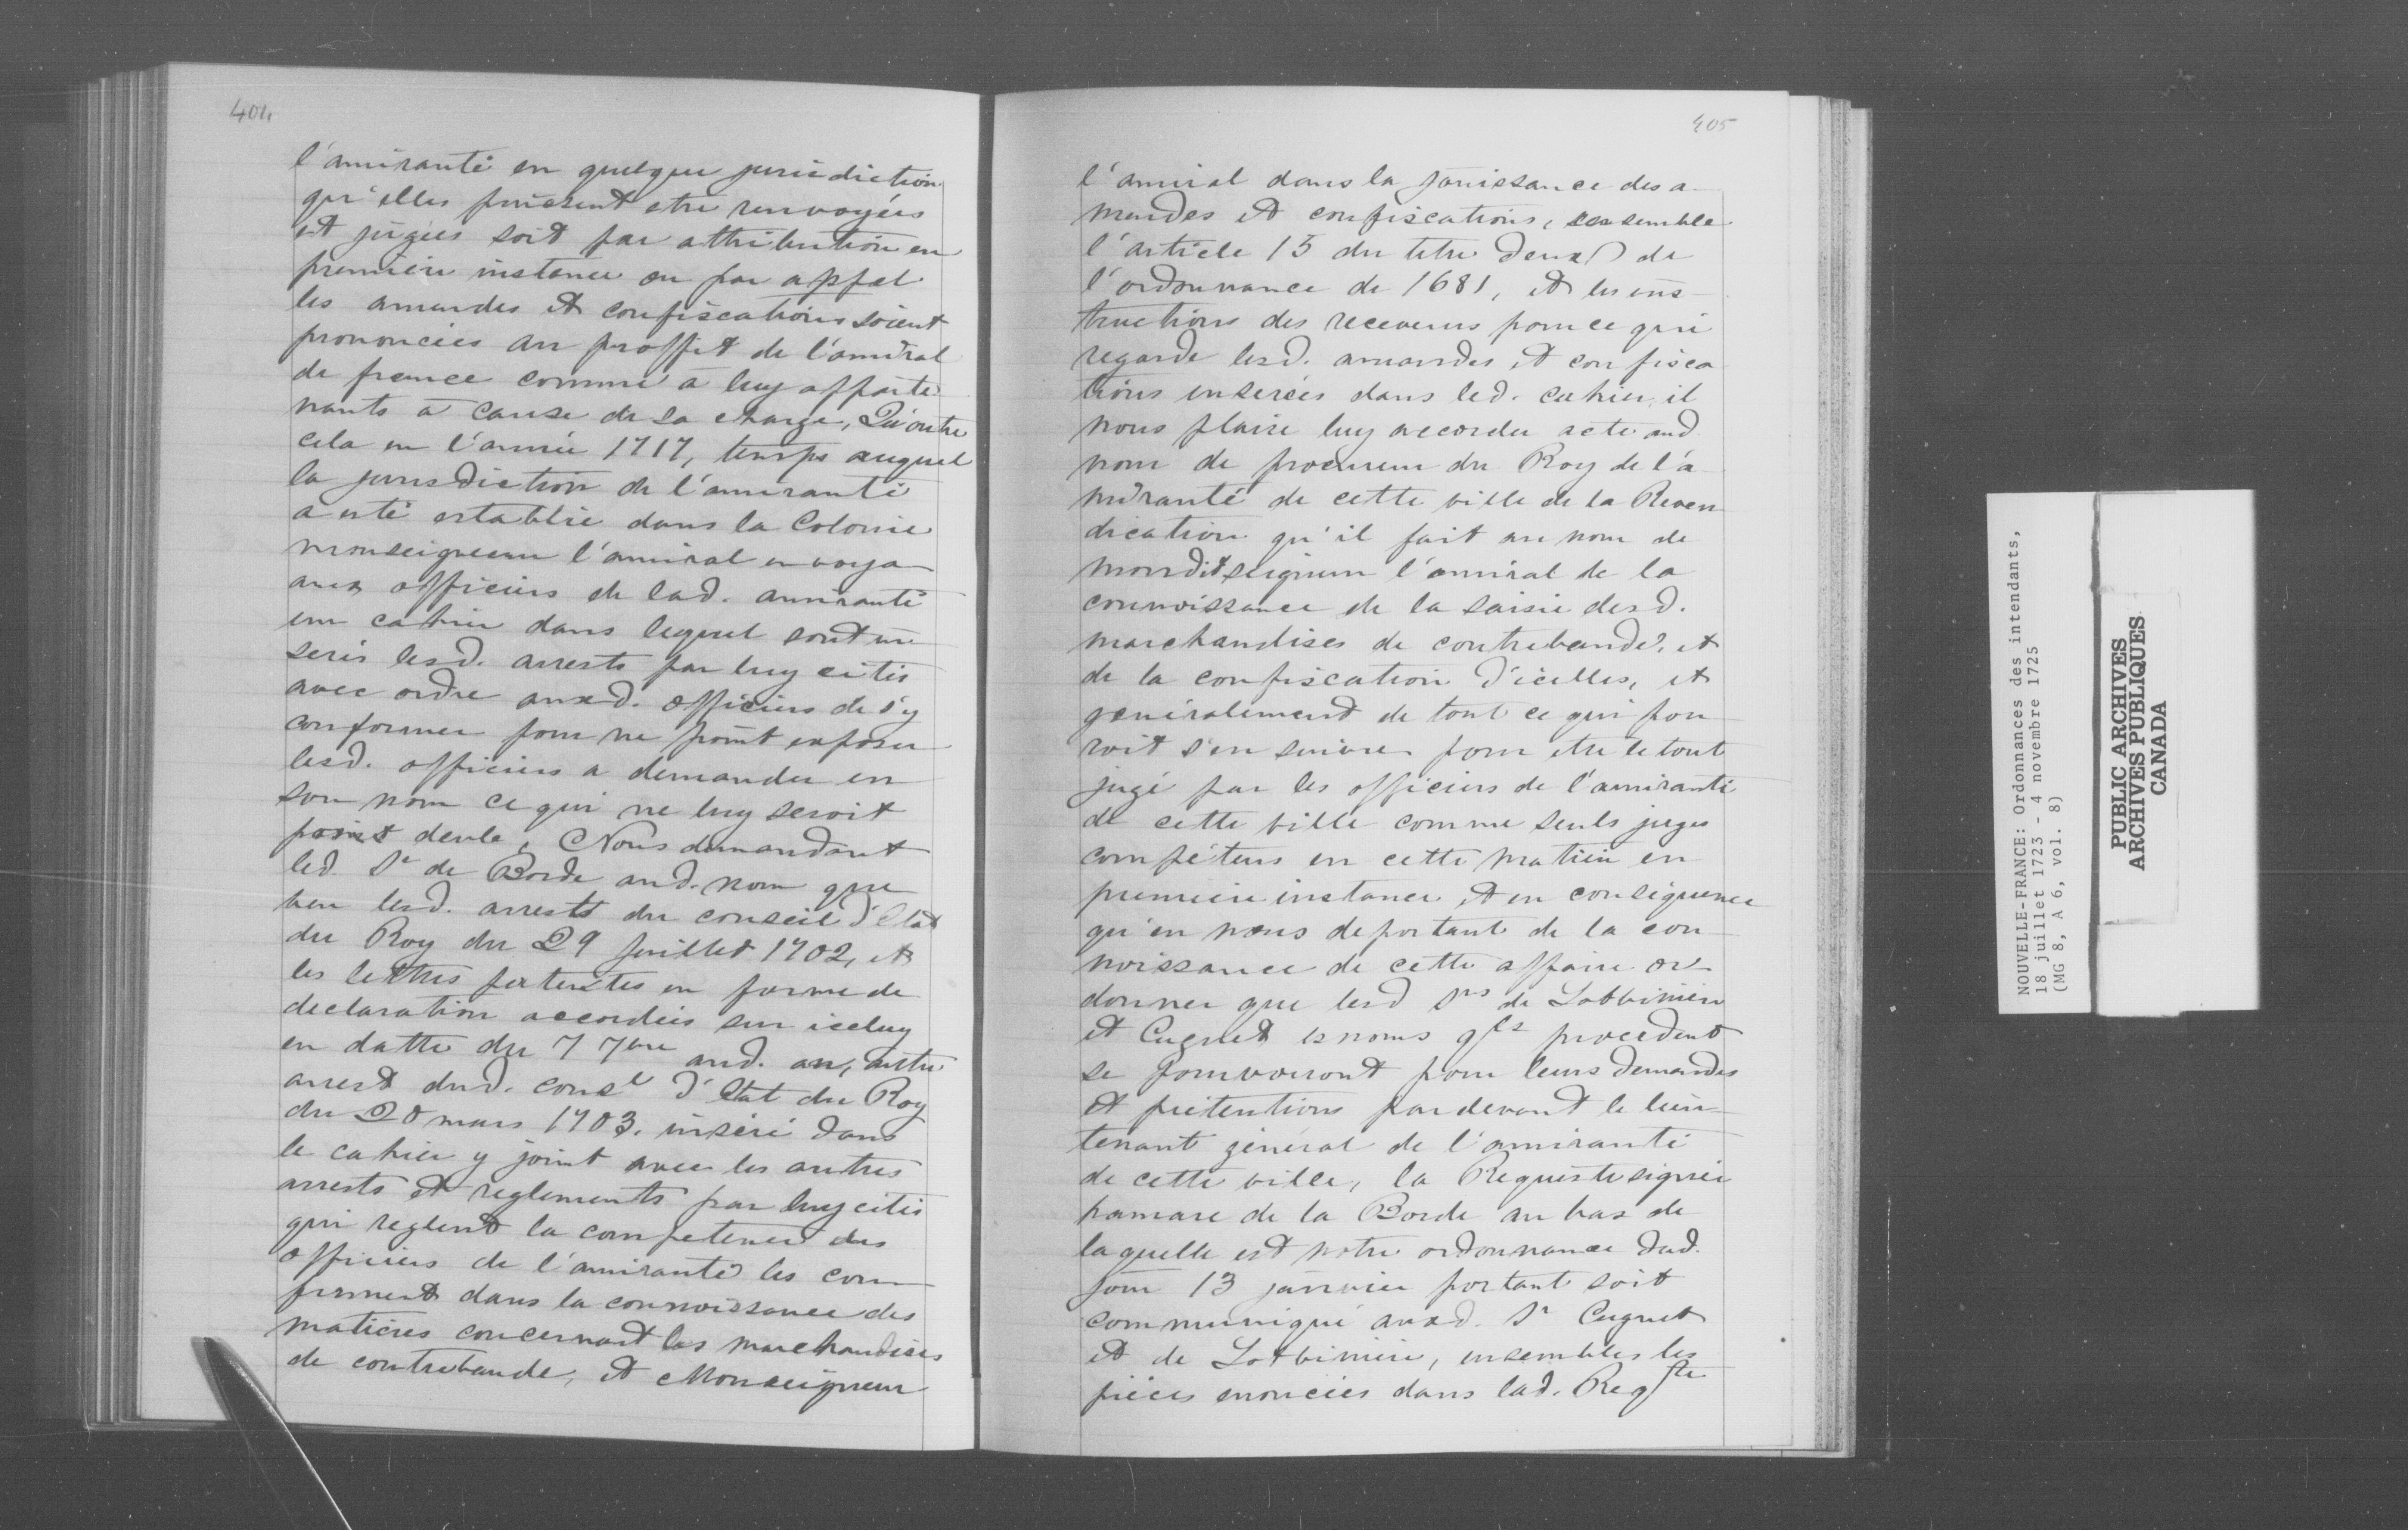 404
l'amirauté en quelque jurisdiction
qu'elles puissent etre renvoyées
et jugées soit par attribution en
premiere instance ou par appel
les amandes et confiscations soient
prononcées au proffit de l'amiral
de france comme a luy apparte
nants a cause de sa charge, Qu'outre
cela en l'année 1717, temps auquel
la jurisdiction de l'amirauté
a esté establie dans la Colonie
monseigneur l'amiral envoya
aux officiers de lad. amirauté
un cahier dans lequel sont in
serés lesd. arrests par luy cités
avec ordre auxd. officiers de s'y
conformer pour ne point exposer
lesd. officiers a demander en
son nom ce qui ne luy seroit
point deule, Nous demandant
led. Sr de Borde aud. nom que
veu lesd. arrests du conseil d'Etat
du Roy du 29 juillet 1702, et
les lettres patentes en forme de
declaration accordées sur iceluy
en datte du 7 7bre aud. an, autre
arrest dud. consl d'Etat du Roy
du 20 mars 1703. inséré dans
le cahier y joint avec les autres
arrests et reglements par luy cités
qui reglent la competence des
officiers de l'amirauté les con
firment dans la connoissance des
matieres concernant les marchandises
de contrebande, et Monseigneur
405
l'amiral dans la jouissance des a
mendes et confiscations, ensemble
l'article 15 du titre deux de
l'ordonnance de 1681, et les ins
tructions des receveurs pour ce qui
regarde lesd. amandes et confisca
tions inserées dans led. cahier, il
nous plaise luy accorder acte aud
nom de procureur du Roy de l'a
mirauté de cette ville de la Reven
dication qu'il fait au nom de
mondit seigneur l'amiral de la
connoissance de la saisie desd.
marchandises de contrebande, et
de la confiscation d'icelles, et
generalement de tout ce qui pou
roit s'en suivre pour etre le tout
jugé par les officiers de l'amirauté
de cette ville comme seuls juges
compétens en cette matiere en
premiere instance, et en consequence
qu'en nous deportant de la con
noissance de cette affaire or
donner que lesd Srs de Lotbiniere
et Cugnet es noms qls procedent
se pourvoiront pour leurs demandes
et prétentions pardevant le lieu
tenant général de l'amirauté
de cette ville, la Requeste signée
hamare de la Borde au bas de
laquelle est notre ordonnance dud.
jour 13 janvier portant soit
communiqué auxd. Sr Cugnet
et de Lotbiniere, ensembles les
piéces enoncées dans lad. Reqste
NOUVELLE-FRANCE: Ordonnances des intendants,
18 juillet 1723 - 4 novembre 1725
(MG 8, A 6, vol. 8)
PUBLIC ARCHIVES
ARCHIVES PUBLIQUES
CANADA